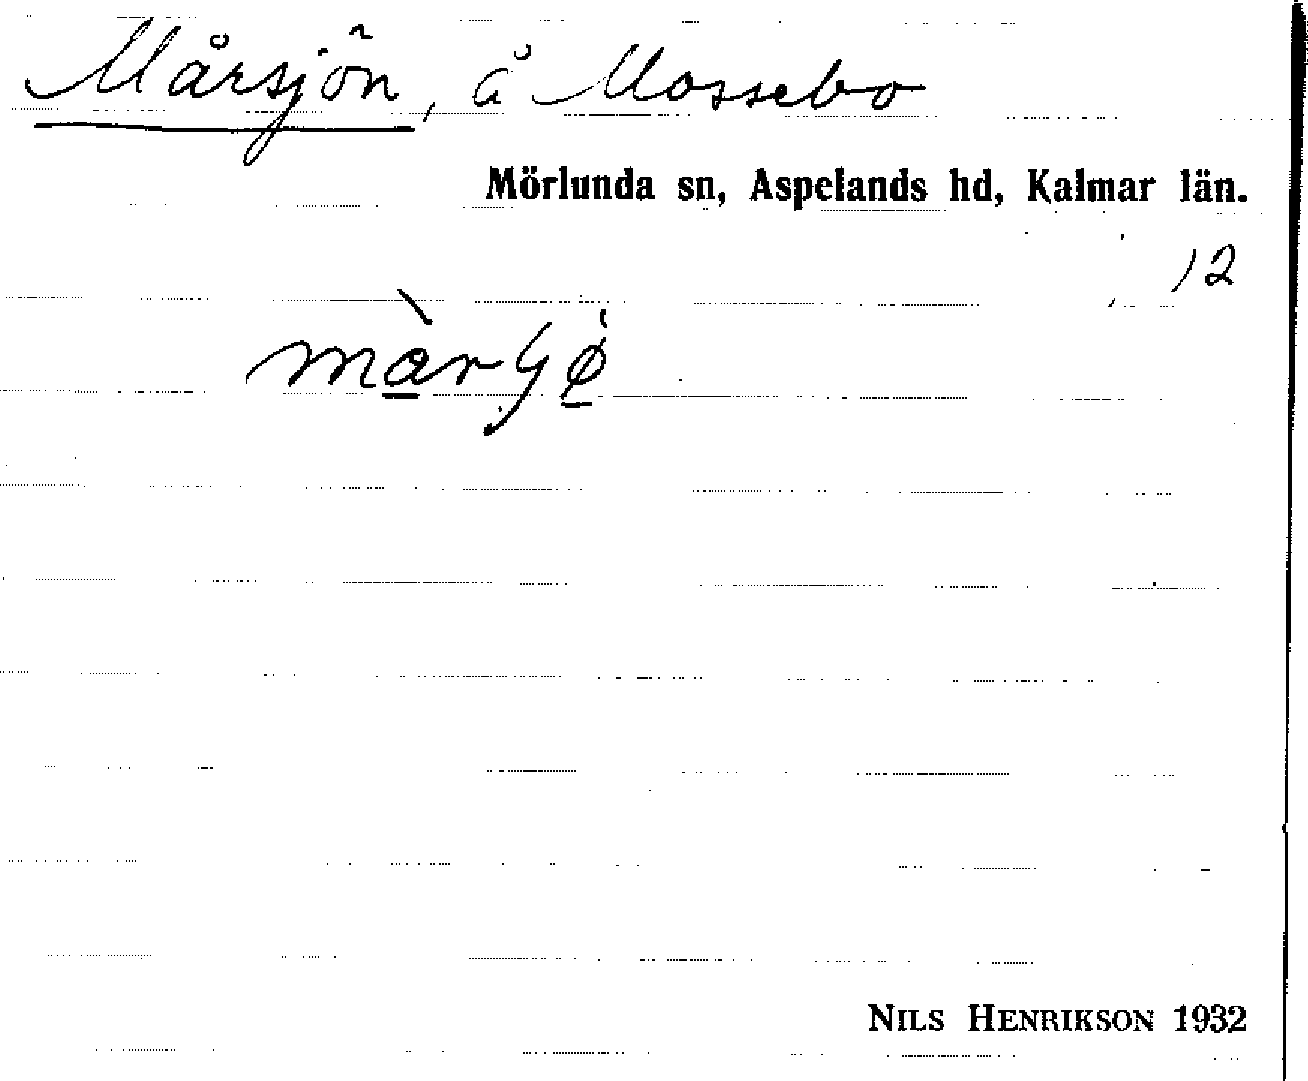 Mårsjön, å Mossebo
Mörlunda sn, Aspelands hd, Kalmar län.
12
NILS HENRIKSON 1932